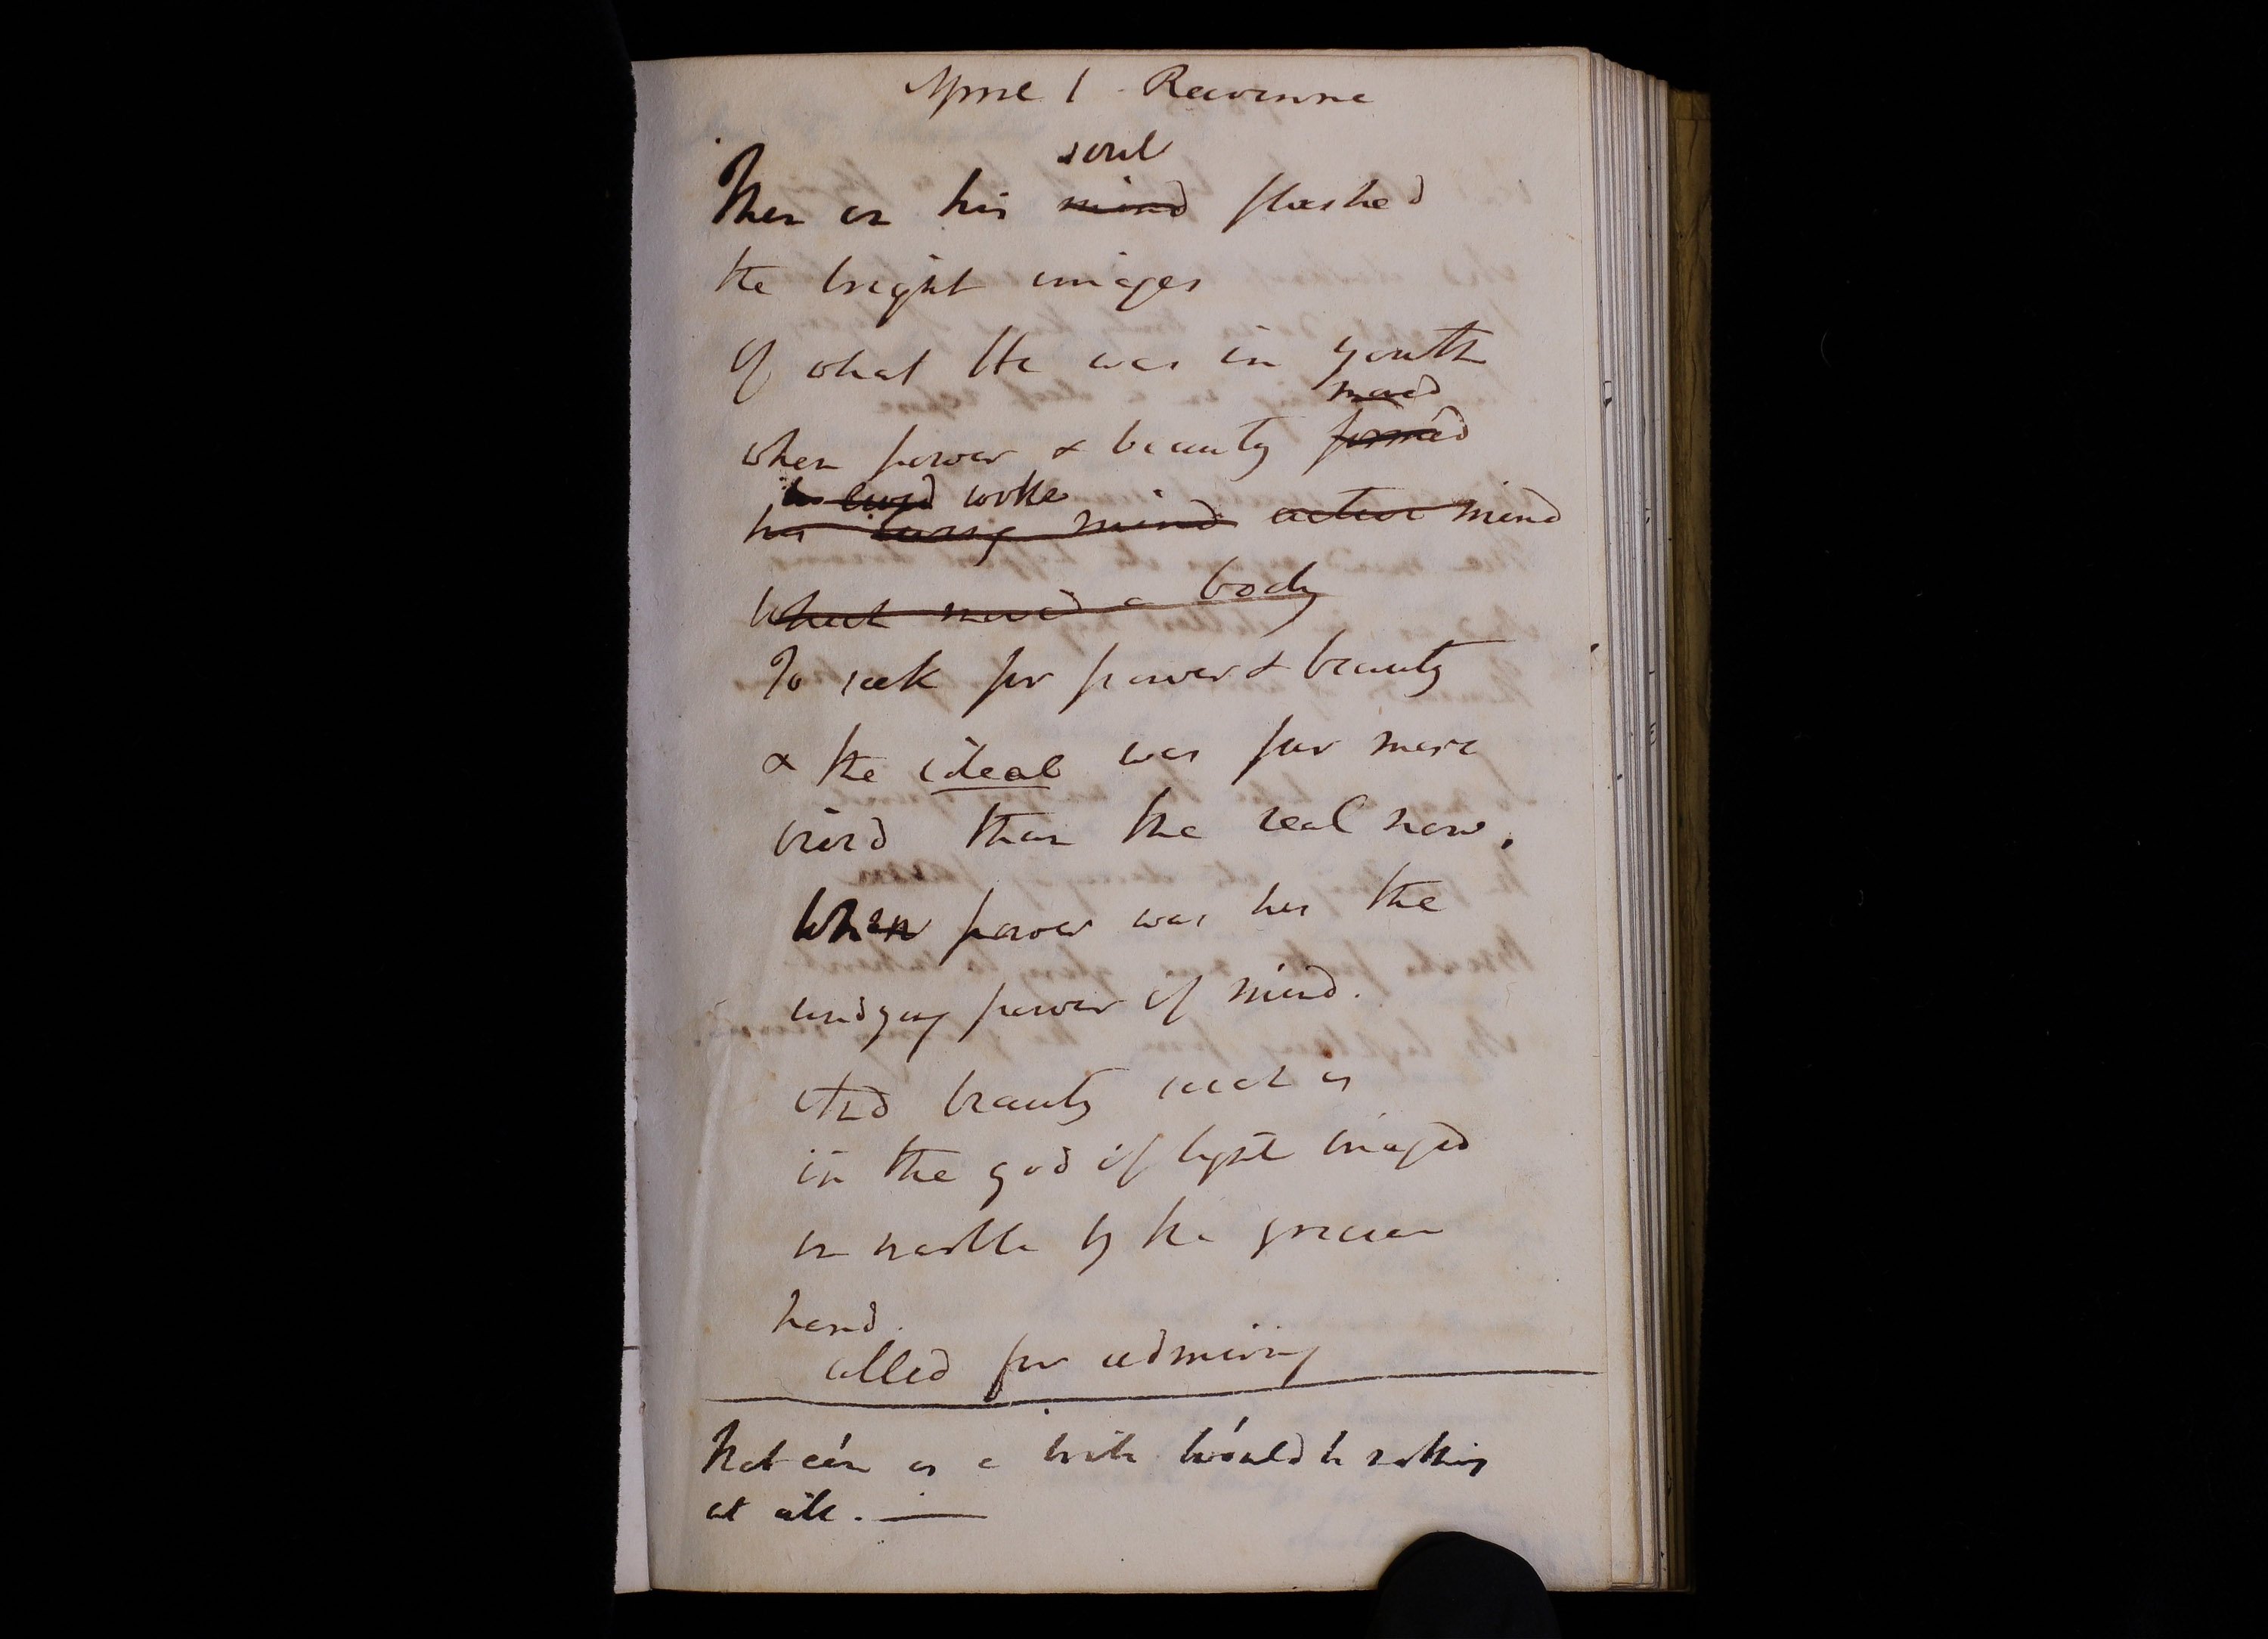 April 1 - Ravenna
soul
Then on his mind flashed
the bright images
Of what He was in youth
mov'd
when power & beauty formed
woke
his mind active mind
What mov'd a body
To seek for power & beauty
& the ideal was far more
vivid than the real now.
When power was his the
undying power of mind.
And beauty such as
in the god of light imaged
in marble by the grecian
hand.
called for admiring
Not e'en as a would be nothing
at all. —